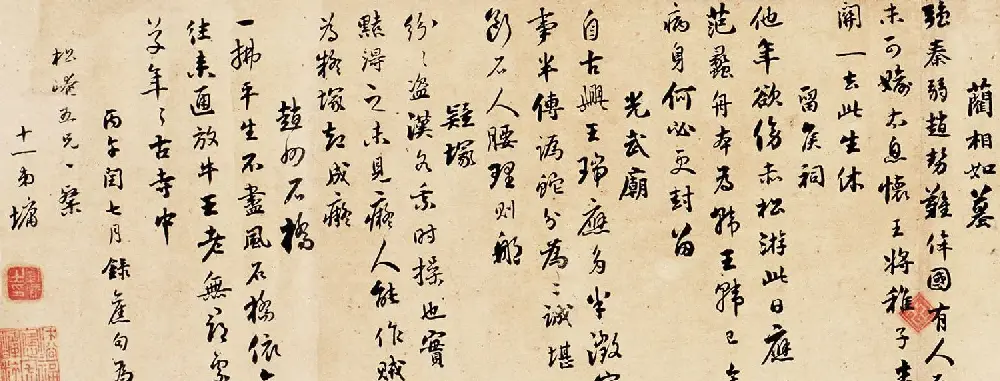 藺相如墓
強秦弱趙勢難侔國有人
未可媮太息懷王將稚子
關一去此生休
留侯祠
他年欲傍赤松游此日應
范蠡舟本為韓王韓已
病身何必更封留
光武廟
自古興王瑞應多半徵
事半傳譌蛇分為二誠堪
斷石人腰理則那
疑塚
紛紛盜漢各乘時操也實
黠得之未見癡人能作賊
為疑塚却成癡
趙州石橋
一拂平生不盡風石橋依
往來通放牛王老無
草年年古寺中
丙午閏七月錄舊句為
松巖五兄一粲
十一弟墉